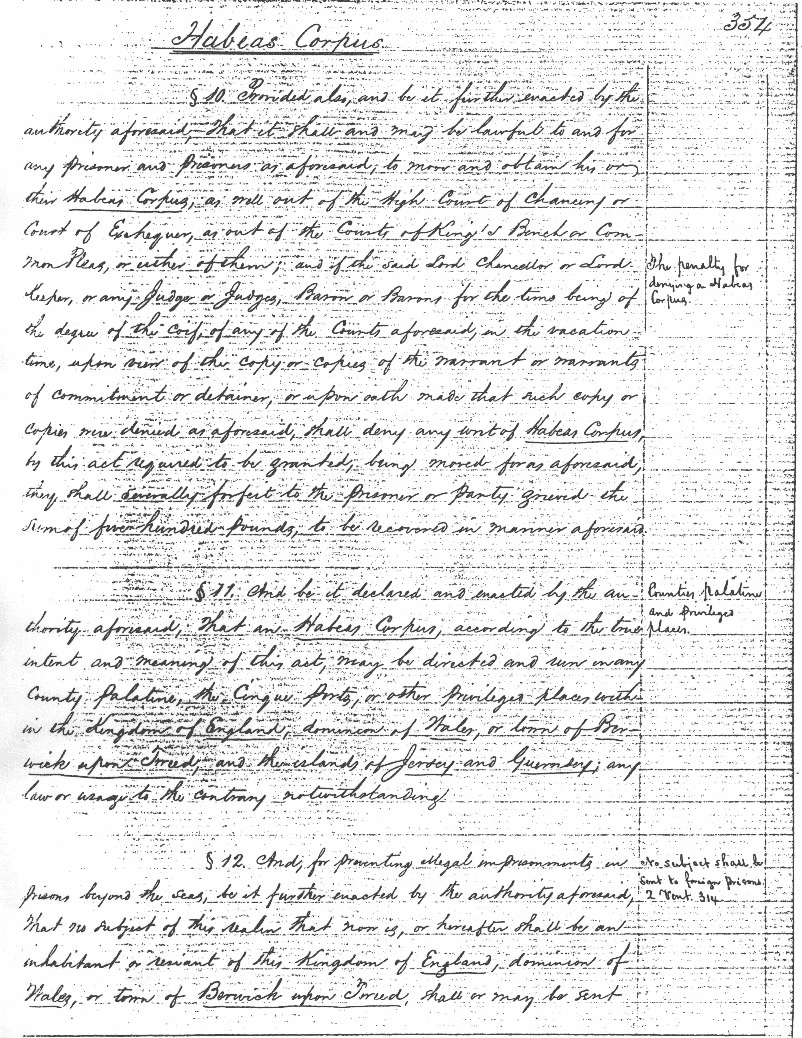 354
Habeas Corpus
§ 10. Provided also, and be it further enacted by the
authority aforesaid, That it shall and may be lawful to and for
any prisoner and prisoners as aforesaid, to move and obtain his or
their Habeas Corpus, as well out of the High Court of Chancery or
Court of Exchequer, as out of the Courts of King's Bench or Com-
mon Pleas, or either of them; and if the said Lord Chancellor or Lord
Keeper, or any Judge or Judges, Baron or Barons for the time being of
the degree of the coif, of any of the Courts aforesaid, in the vacation
time, upon view of the copy or copies of the warrant or warrants
of commitment or detainer, or upon oath made that such copy or
copies were denied as aforesaid, shall deny any writ of Habeas Corpus,
by this act required to be granted, being moved for as aforesaid,
they shall severally forfeit to the prisoner or party grieved the
sum of five hundred pounds, to be recovered in manner aforesaid.
The penalty for
denying a Habeas
Corpus.
§ 11. And be it declared and enacted by the au-
thority aforesaid, That an Habeas Corpus, according to the true
intent and meaning of this act, may be directed and run in any
County Palatine, the Cinque Ports, or other privileged places with-
in the Kingdom of England, dominion of Wales, or town of Ber-
wick upon Tweed, and the islands of Jersey and Guernsey; any
law or usage to the contrary notwithstanding.
Counties palatine
and privileged
places.
§ 12. And, for preventing illegal imprisonments in
prisons beyond the seas, be it further enacted by the authority aforesaid,
That no subject of this realm that now is, or hereafter shall be an
inhabitant or resiant of this Kingdom of England, dominion of
Wales, or town of Berwick upon Tweed, shall or may be sent
No subject shall be
sent to foreign prisons.
2 Vent. 314